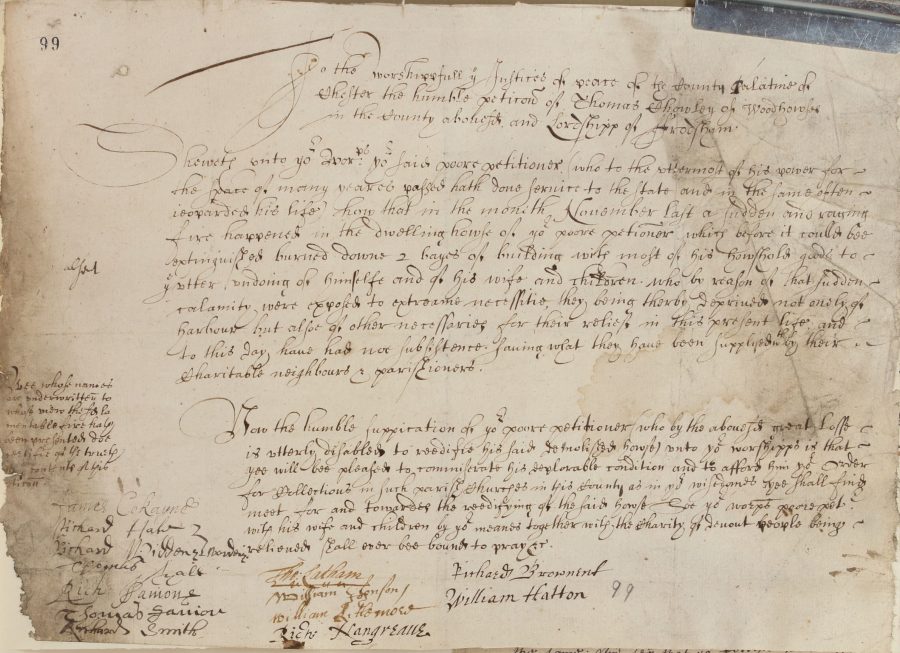 99
To the worshippfull ye Justices of peace of the County Palatine of
Chester the humble peticon of Thomas Chowley of Woodhowses
in the County abovesd and Lordshipp of Frodsham
Sheweth unto yor Worps yor said poore petitioner who to the uttermost of his power for
the space of many yeares passed hath done service to the state and in the same often
ieoparded his life, how that in the month November last a sudden and raging
fire happened in the dwelling howse of yor poore petioner which before it could bee
extinguished burned downe 2 bayes of building with most of his howshold goods to
ye utter undoing of himselfe and of his wife and children. who by reason of that sudden
calamity were exposed to extreame necessitie they being therby deprived not onely of
harbour but alsoe of other necessaries for their reliefe in this present life, and
to this day have had noe subsistence saving what they have been supplied with by their
Charitable neighbours & parishioners.
Now the humble supplication of yor poore petitioner who by the abovesd great losse
is utterly disabled to reedifie his said demolished howse unto yor worshipps is that
yee will bee pleased to commiserate his deplorable condition and to afford him yor Order
for Collections in such parish Churches in this County as in yor wisedomes yee shall find
meet for and towardes the reedifying of the said howse Soe yor worps poore pet
with his wife and children by yor meanes together with the Charity of devout people being
relieved shall ever bee bound to pray &c.
Wee whose names
are underwritten to
whose view the sd la
mentable fire hath
been presented doe
certifie of the truth
contents of this
James Cokayne
Richard Hale
Richard
Thomas Hale
Rich Jamons
Thomas Savior
Richard Smith
Tho: Latham
William Jhenson
William Lithemore
Rich Hangreave
Richard Brownent
William Hatton
99